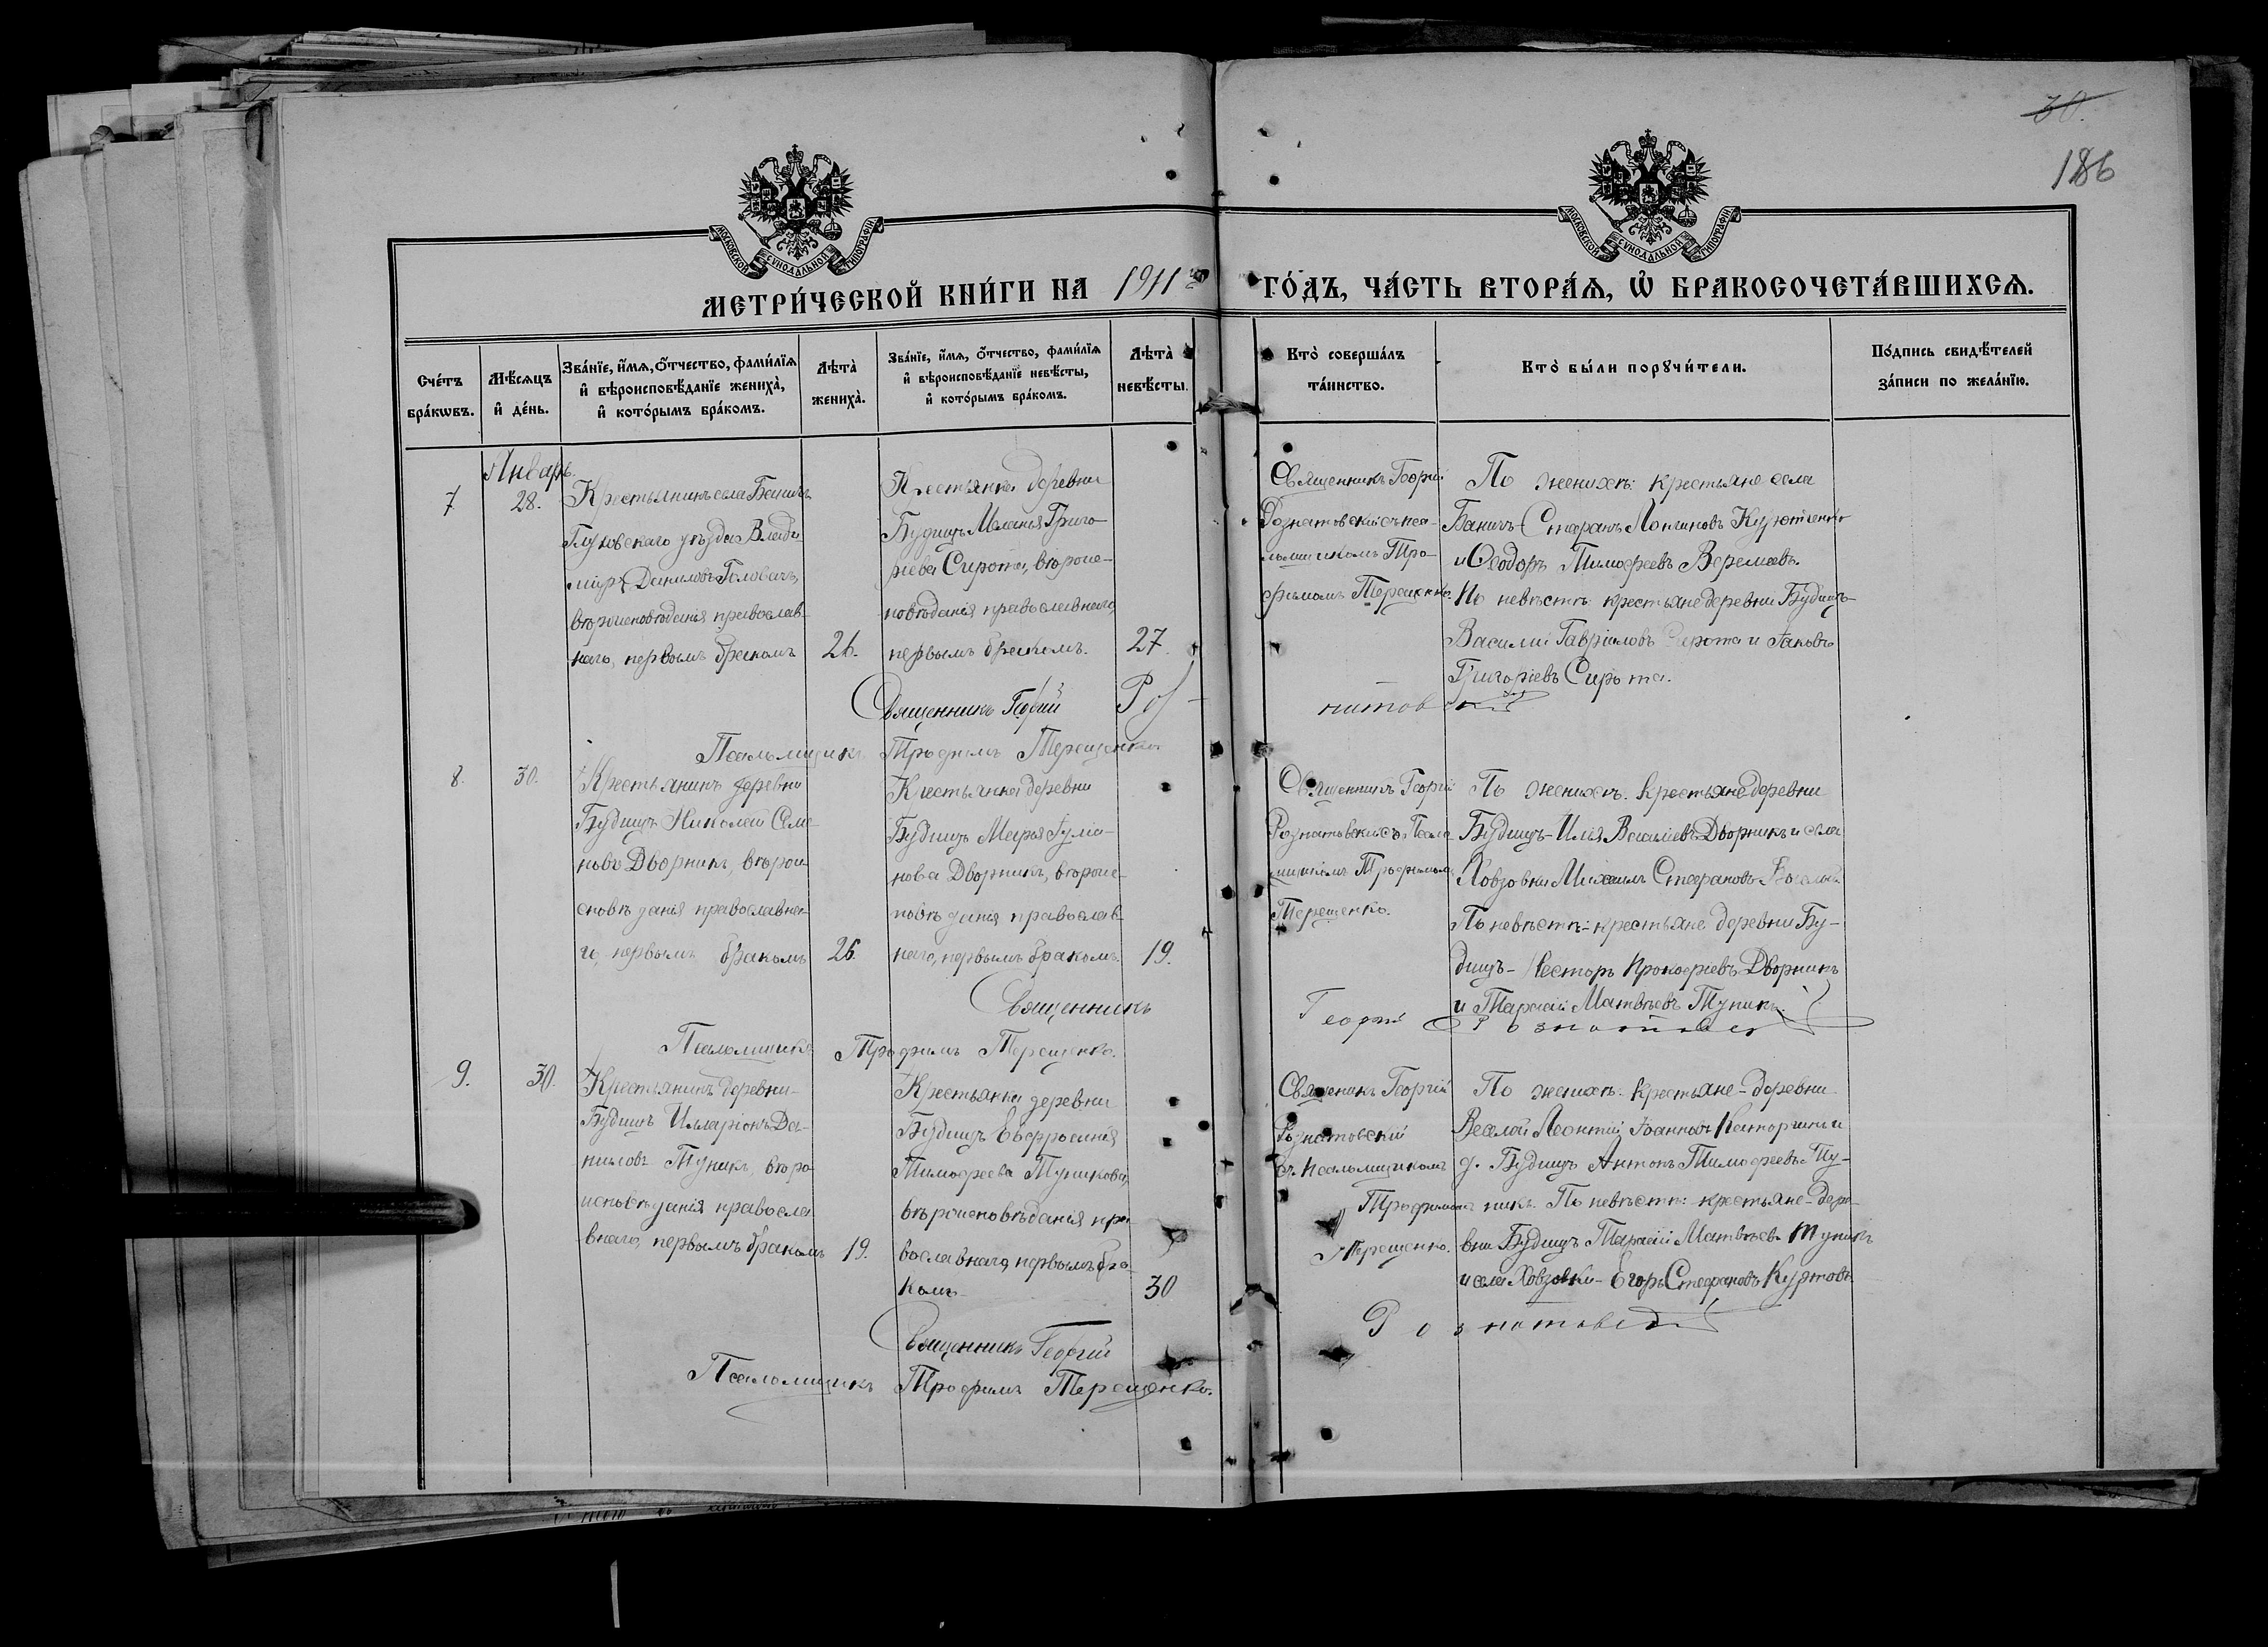 30.
186
МОСКОВСКОЙ СѴНОДАЛЬНОЙ ТИПОГРАФІИ
МОСКОВСКОЙ СѴНОДАЛЬНОЙ ТИПОГРАФІИ
МЕТРИ́ЧЕСКОЙ КНИ́ГИ НА 1911 ГО́ДЪ, ЧА́СТЬ ВТОРА́Ѧ, Ѡ҆ БРАКОСОЧЕТА́ВШИХСѦ.
Сче́тъ
бра́кѡвъ.
Мѣ́сѧцъ
и҆ де́нь.
Зва́нїе, и҆́мѧ, ѻ҆́тчество, фами́лїѧ
и҆ вѣроисповѣ́данїе жениха̀,
и҆ кото́рымъ бра́комъ.
Лѣ́та̀
жениха̀.
Зва́нїе, и҆́мѧ, ѻ҆́тчество, фами́лїѧ
и҆ вѣроисповѣ́данїе невѣ́сты,
и҆ кото́рымъ бра́комъ.
Лѣ́та̀
невѣ́сты.
Кто̀ соверша́лъ
та́инство.
Кто̀ бы́ли порꙋчи́тели.
По́дпись свидѣ́телей
за́писи по жела́нїю.
Январь
7
28.
Крестьянинъ села Баничъ
Глуховскаго уѣзда Влади-
миръ Даниловъ Головачъ,
вѣроисповѣданія православ-
наго, первымъ бракомъ
26.
Крестьянка деревни
Будищъ Меланья Григо-
рьева Сирота, вѣроис-
повѣданія православнаго,
первымъ бракомъ.
27
Священникъ Георгій
Рознатовскій съ пса-
ломщикомъ Тро-
фимомъ Терещенко.
По женихѣ: крестьяне села
Баничъ Стефанъ Логиновъ
и Ѳеодоръ Тимофеевъ Веремеевъ.
По невѣстѣ крестьяне деревни Будищъ
Василій Гавріиловъ Сирота и Іаковъ
Григоріевъ Сирота.
Священникъ Георгій Роз-
натовскій
Псаломщикъ Трофимъ Терещенко
8.
30.
Крестьянинъ деревни
Будищъ Николай Семе-
новъ Дворникъ, вѣрои-
сповѣданія православна-
го, первымъ бракомъ
26.
Крестьянка деревни
Будищъ Марѳа Іулiа-
нова Дворникъ, вѣроис-
повѣданія православ-
наго, первымъ бракомъ.
19.
Священникъ Георгій
Рознатовскій съ Псало-
мщикомъ Трофимомъ
Терещенко.
По женихѣ. Крестьяне деревни
Будищъ - Илья Василіевъ Дворникъ и села
Ховзовки Михаилъ Стефановъ
По невѣстѣ: крестьяне деревни Бу-
дищъ - Несторъ Прокофіевъ Дворникъ
и Тарасій Матвѣевъ Тупикъ.
Священникъ
Георгій Рознатовскій
Псаломщикъ Трофимъ Терещенко.
9.
30.
Крестьянинъ деревни
Будищъ Илларіонъ Да-
ниловъ Тупикъ, вѣро-
исповѣданія правосла-
внаго, первымъ бракомъ
19.
Крестьянка деревни
Будищъ Евфросинія
Тимофеева Тупикова,
вѣроисповѣданія пра-
вославнаго, первымъ бра-
комъ
30
Священикъ Георгій
Рознатовскій
съ псаломщикомъ
Трофимомъ
Терещенко.
По женихѣ: крестьяне - деревни
Веселой Леонтій Іоанновъ и
д. Будищъ Антонъ Тимофеевъ Ту-
пикъ. По невѣстѣ: крестьяне - дере-
вни Будищъ Тарасій Матвѣевъ Тупикъ
и села Ховзовки - Егоръ Стефановъ Куртовъ
Священникъ Георгій
Рознатовскій
Псаломщикъ Трофимъ Терещенко.